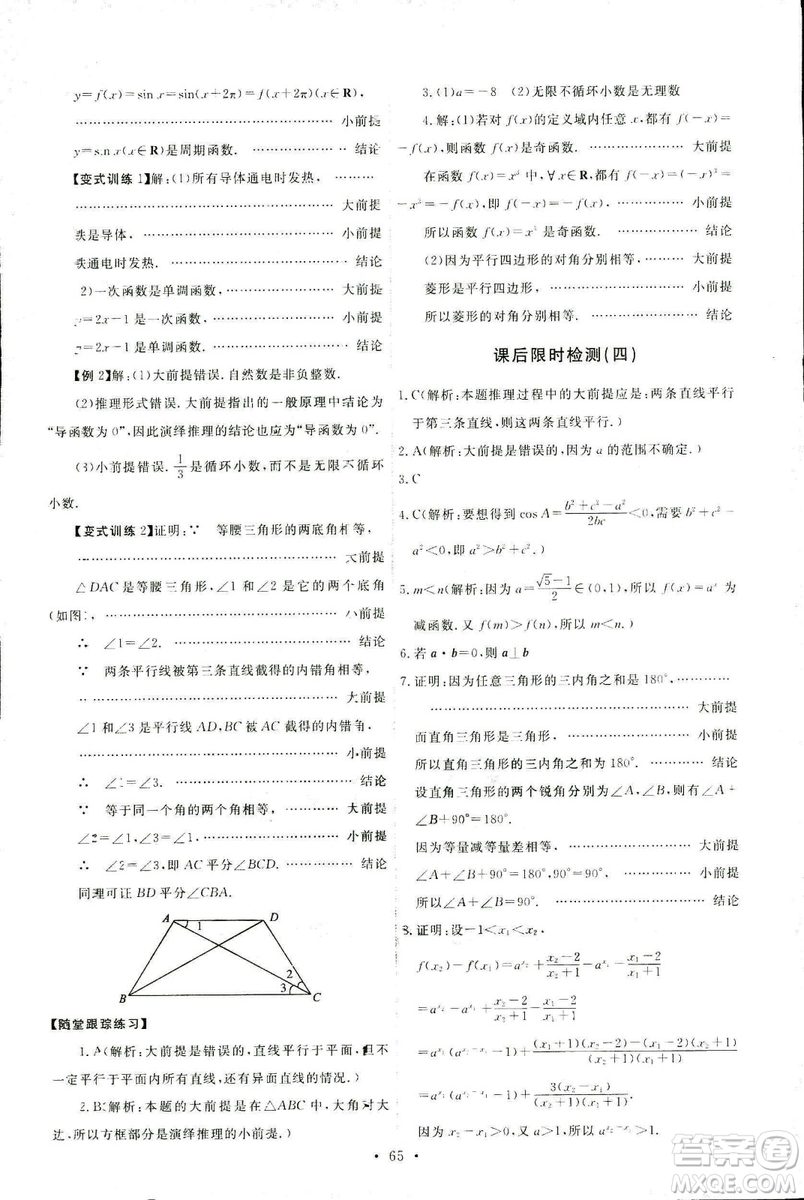 y=f(x)=sin x=sin(x+2π)=f(x+2π)(x∈R),
………………………………………… 小前提
y=sin x(x∈R)是周期函数. ……………… 结论
【变式训练1】解:(1)所有导体通电时发热,
………………………………………… 大前提
铁是导体. ……………………………… 小前提
铁通电时发热. ………………………… 结论
2)一次函数是单调函数, ……………… 大前提
y=2x-1是一次函数, ………………… 小前提
y=2x-1是单调函数. ………………… 结论
【例2】解:(1)大前提错误.自然数是非负整数.
(2)推理形式错误.大前提指出的一般原理中结论为
“导函数为0”,因此演绎推理的结论也应为“导函数为0”.
(3)小前提错误. 1/3 是循环小数,而不是无限不循环
小数.
【变式训练2】证明:∵ 等腰三角形的两底角相等,
………………………………………… 大前提
△DAC是等腰三角形,∠1和∠2是它的两个底角
(如图), ……………………………… 小前提
∴ ∠1=∠2. ………………………… 结论
∵ 两条平行线被第三条直线截得的内错角相等,
………………………………………… 大前提
∠1和∠3是平行线AD,BC被AC截得的内错角,
………………………………………… 小前提
∴ ∠1=∠3. ………………………… 结论
∵ 等于同一个角的两个角相等, ……… 大前提
∠2=∠1,∠3=∠1, ………………… 小前提
∴ ∠2=∠3,即AC平分∠BCD. ……… 结论
同理可证BD平分∠CBA.
A D
1
2
3
B C
【随堂跟踪练习】
1.A(解析:大前提是错误的,直线平行于平面,但不
一定平行于平面内所有直线,还有异面直线的情况.)
2.B(解析:本题的大前提是在△ABC中,大角对大
边,所以方框部分是演绎推理的小前提.)
3.(1)a=-8 (2)无限不循环小数是无理数
4.解:(1)若对f(x)的定义域内任意x,都有f(-x)=
-f(x),则函数f(x)是奇函数. ………… 大前提
在函数f(x)=x³中,∀x∈R,都有f(-x)=(-x)³=
-x³=-f(x),即f(-x)=-f(x). ……… 小前提
所以函数f(x)=x³是奇函数. ………… 结论
(2)因为平行四边形的对角分别相等, … 大前提
菱形是平行四边形, …………………… 小前提
所以菱形的对角分别相等. …………… 结论
课后限时检测(四)
1.C(解析:本题推理过程中的大前提应是:两条直线平行
于第三条直线,则这两条直线平行.)
2.A(解析:大前提是错误的,因为a的范围不确定.)
3.C
4.C(解析:要想得到cos A=(b²+c²-a²)/2bc<0,需要b²+c²-
a²<0,即a²>b²+c².)
5.m<n(解析:因为a=(√5-1)/2∈(0,1),所以f(x)=aˣ为
减函数.又f(m)>f(n),所以m<n.)
6.若a·b=0,则a⊥b
7.证明:因为任意三角形的三内角之和是180°, …………
………………………………………… 大前提
而直角三角形是三角形, ……………… 小前提
所以直角三角形的三内角之和是180°. … 结论
设直角三角形的两个锐角分别为∠A,∠B,则∠A+
∠B+90°=180°.
因为等量减等量差相等, ……………… 大前提
∠A+∠B+90°-90°=180°-90°, …… 小前提
所以∠A+∠B=90°. ………………… 结论
8.证明:设-1<x₁<x₂,
f(x₂)-f(x₁)=a^x₂+(x₂-2)/(x₂+1)-a^x₁-(x₁-2)/(x₁+1)
=a^x₂-a^x₁+(x₂-2)/(x₂+1)-(x₁-2)/(x₁+1)
=a^x₂-a^x₁+[(x₁+1)(x₂-2)-(x₁-2)(x₂+1)]/[(x₂+1)(x₁+1)]
=a^x₁(a^(x₂-x₁)-1)+3(x₂-x₁)/[(x₂+1)(x₁+1)].
因为x₂-x₁>0,又a>1,所以
• 65 •
答案圈
MXQE.COM